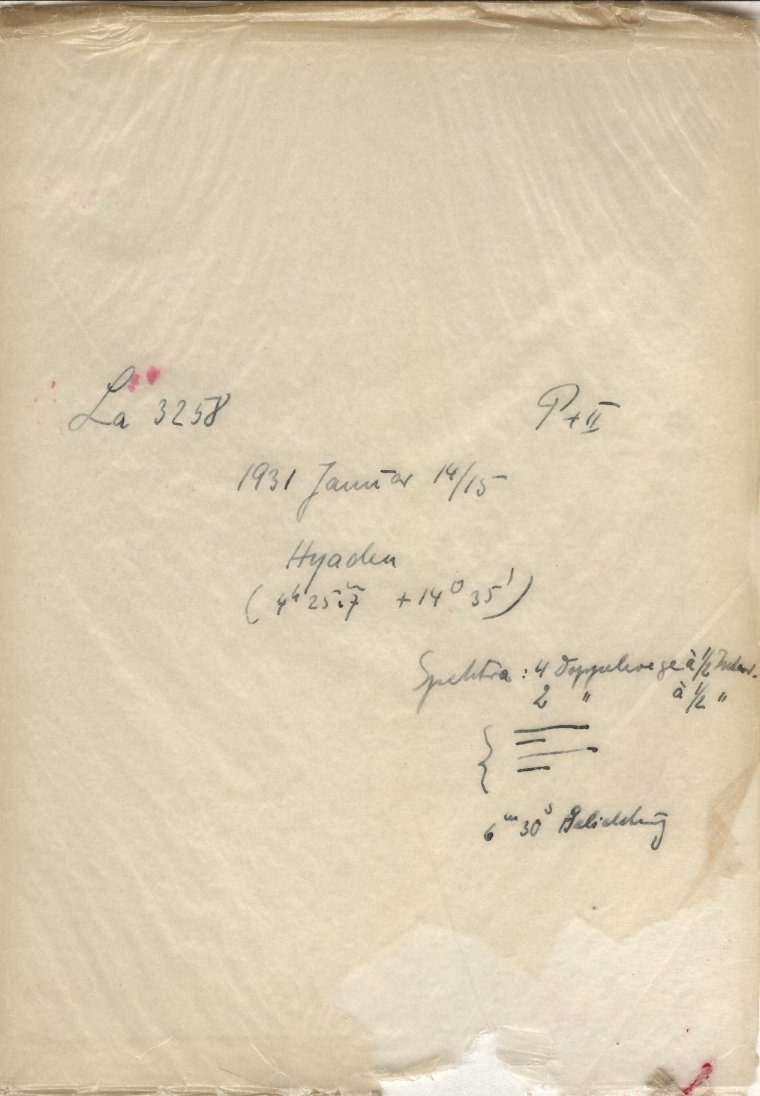 La 3258 P+II
1931 Januar 14/15
Hyaden
(4ʰ 25ᵐ.7 +14° 35′)
Spektra: 4 Doppelwege à 1/2
2 " à 1/2 "
6ᵐ 30ˢ Belichtung